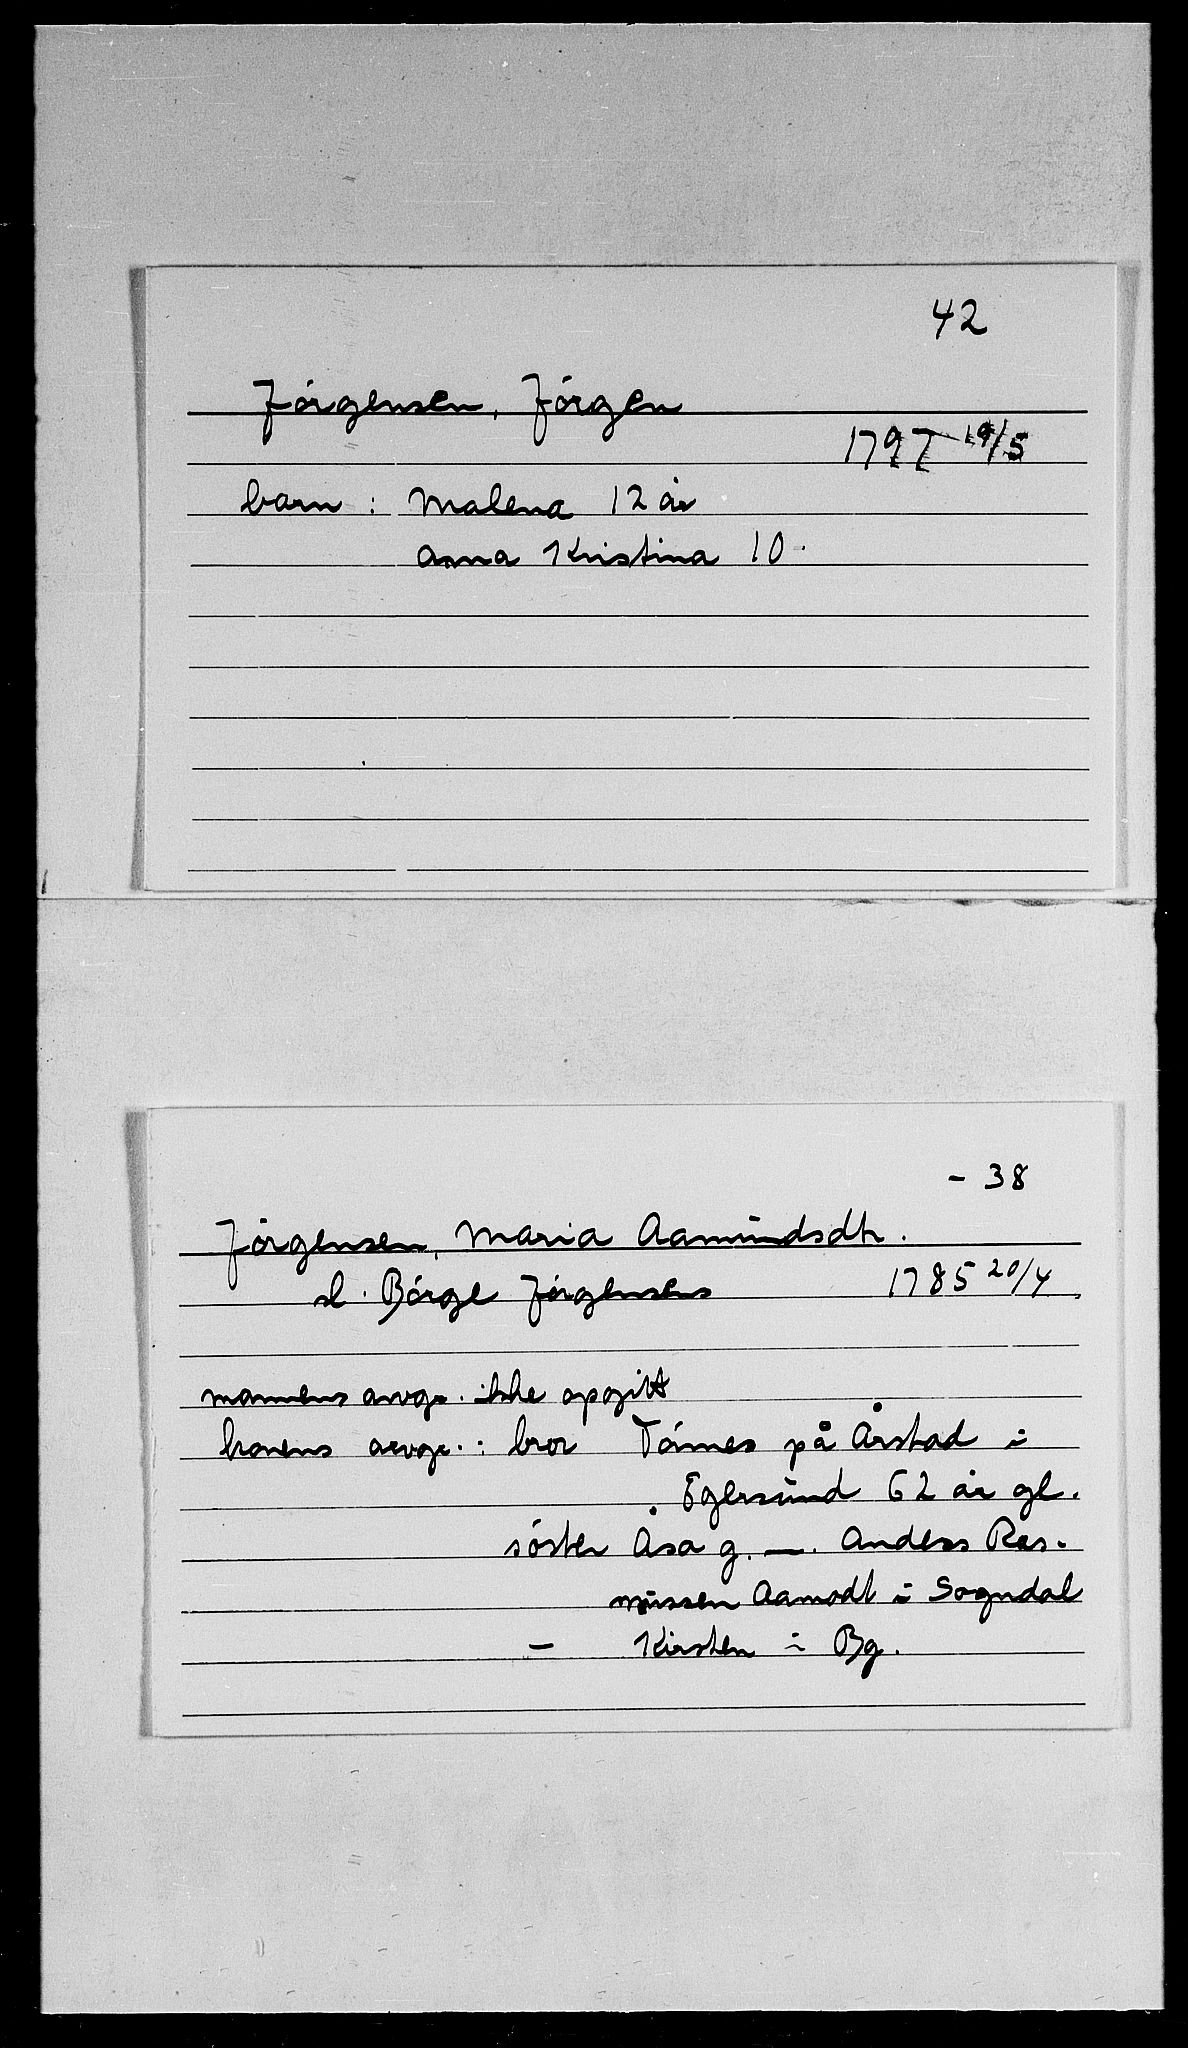 42
Jórgensen, Jórgen
1797 19/5
barn : Malena 12 år
Anna Kristina 10 -
- 38
Jórgensen, Maria Aamundsdtr.
sl. Bórge Jórgensens
1785 20/4
mannens arvgr. ikke opgitt
konens arvgr. : bror Tónnes på Årstad i
Egersund 62 år gl.
sóster Åsa g. —. Anders Ras-
mussen Aamodt i Sogndal
- Kirsten i Bg.